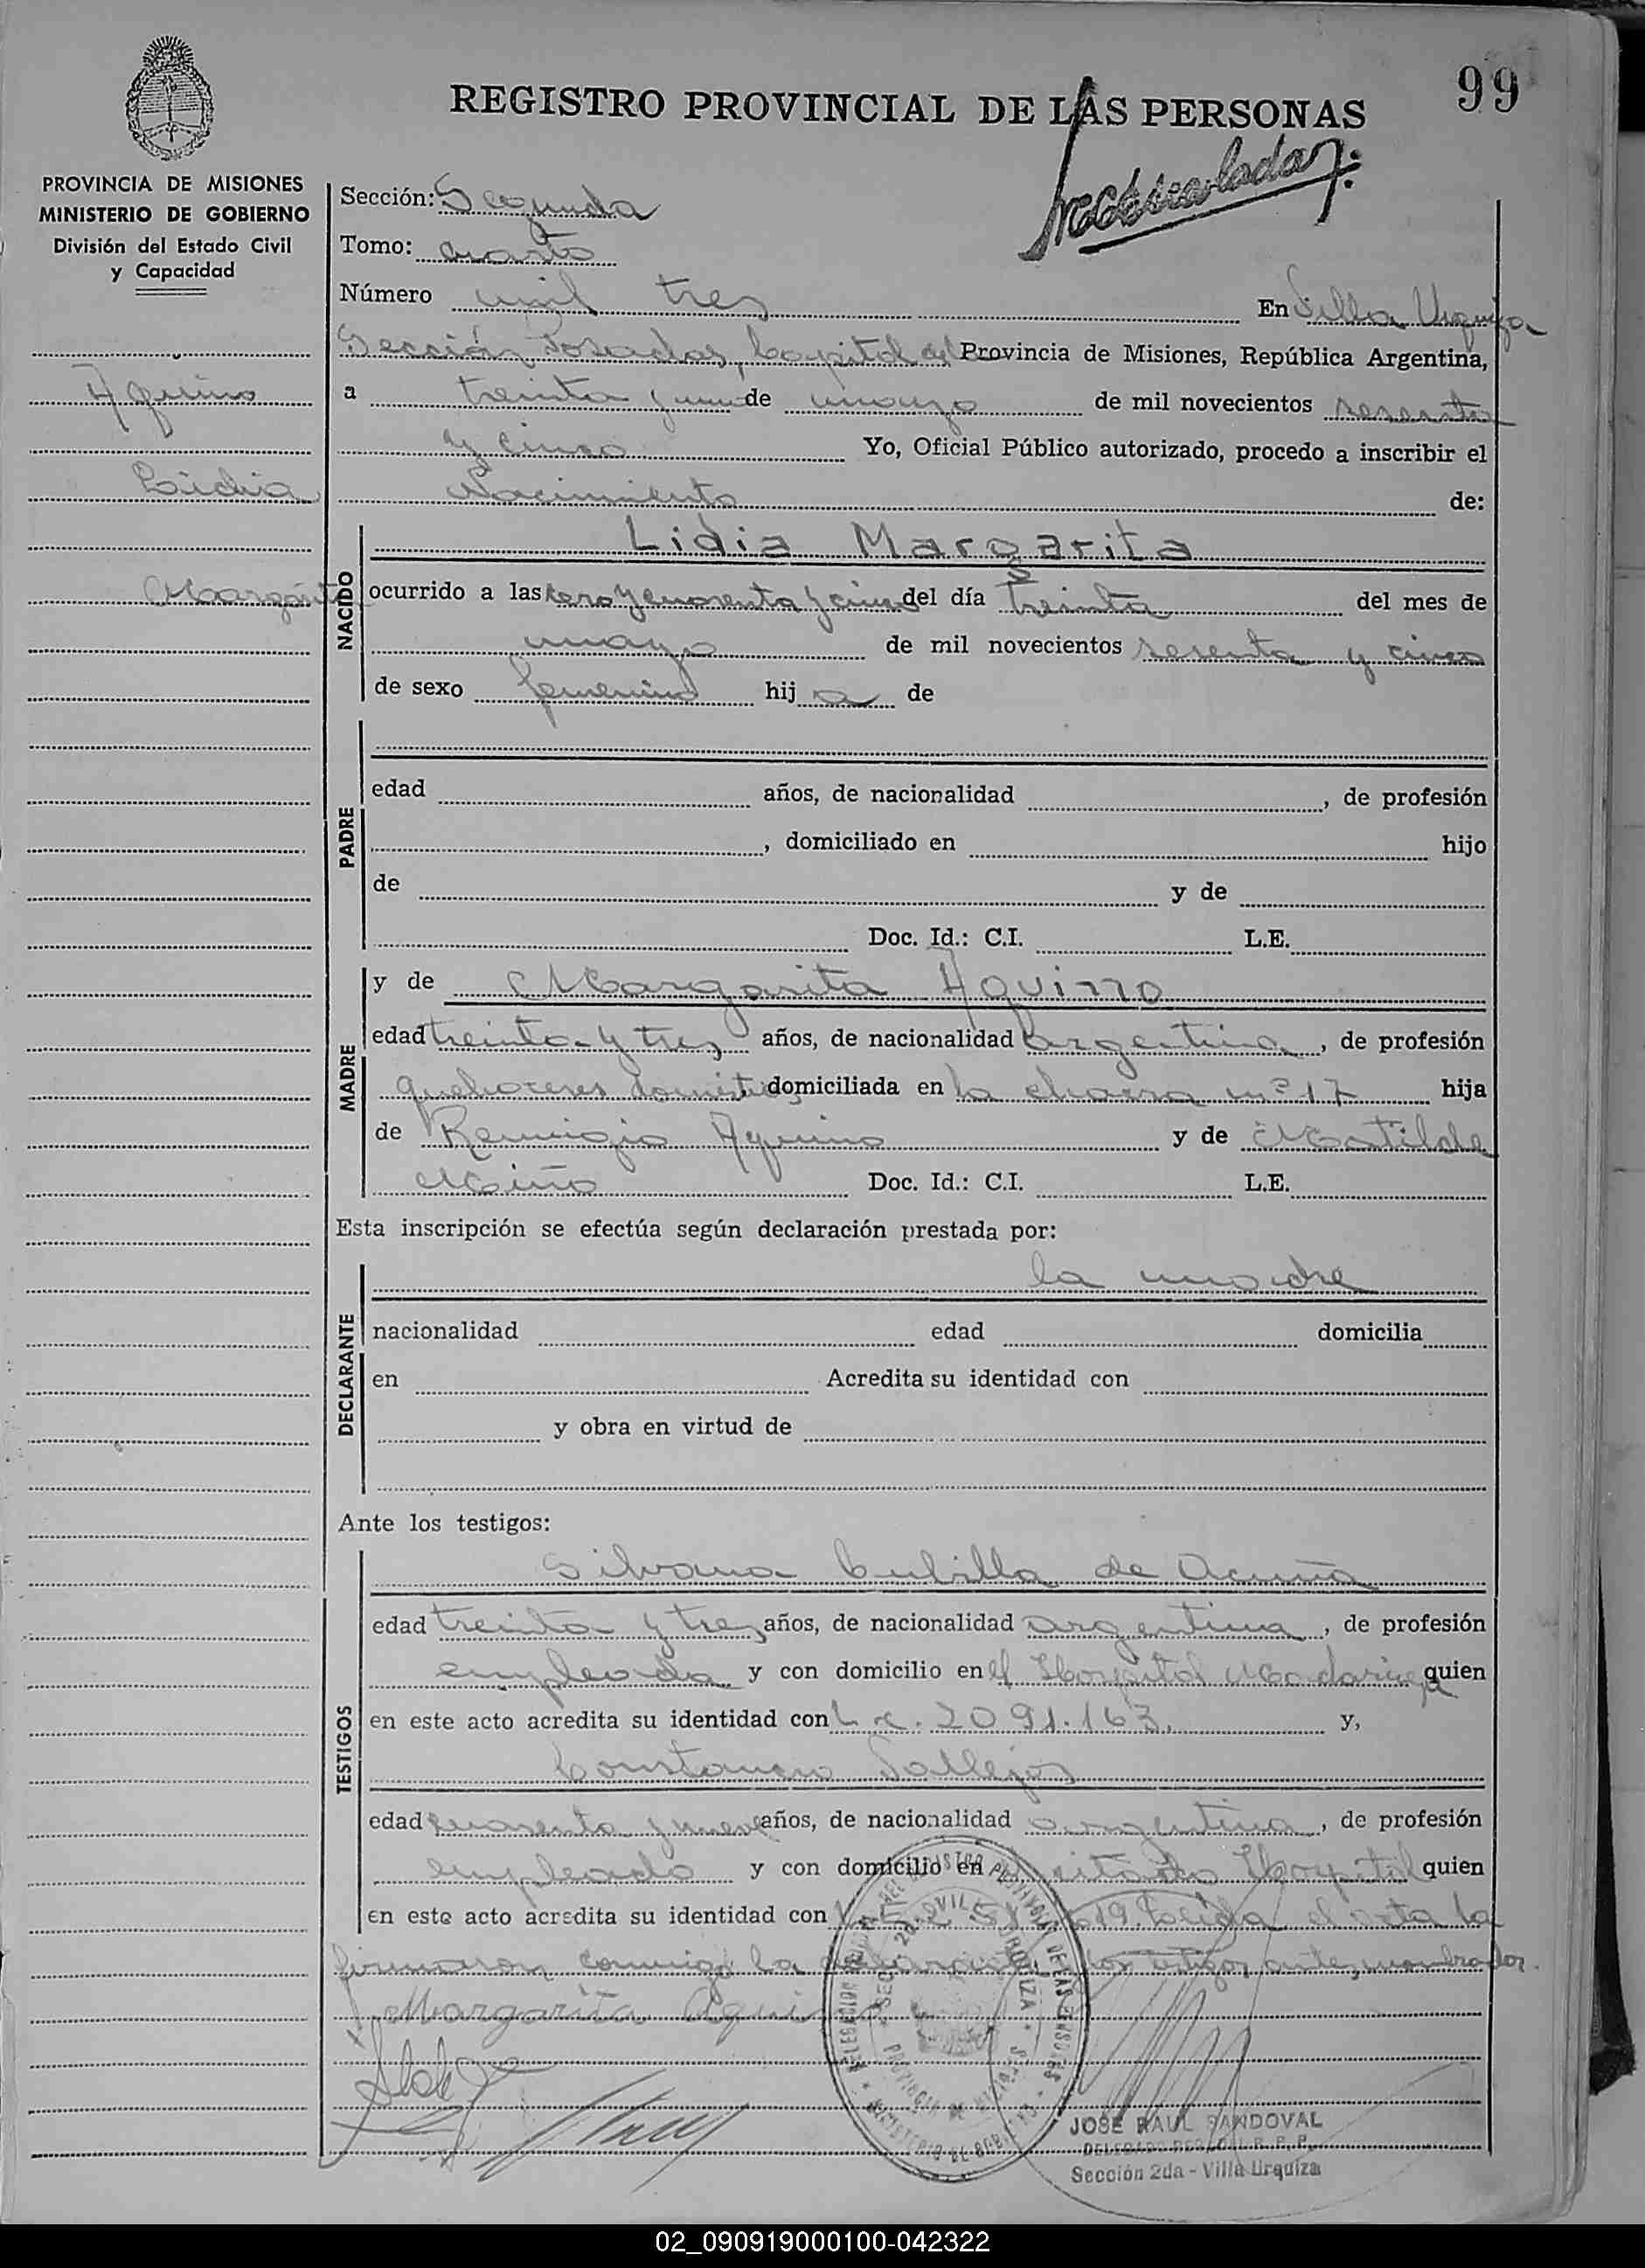 99
REGISTRO PROVINCIAL DE LAS PERSONAS
PROVINCIA DE MISIONES
MINISTERIO DE GOBIERNO
División del Estado Civil
y Capacidad
Aquino
Lidia
Margarita
Sección: Segunda
Tomo: cuarto
Número mil tres En Villa Urquiza
Sección Posadas, Capital de Provincia de Misiones, República Argentina,
a treinta y uno de mayo de mil novecientos sesenta
y cinco Yo, Oficial Público autorizado, procedo a inscribir el
Nacimiento de:
NACIDO
Lidia Margarita
ocurrido a las cero y cuarenta y cinco del día treinta del mes de
mayo de mil novecientos sesenta y cinco
de sexo femenino hij a de
PADRE
edad años, de nacionalidad , de profesión
, domiciliado en hijo
de y de
Doc. Id.: C.I. L.E.
MADRE
y de Margarita Aquino
edad treinta y tres años, de nacionalidad argentina, de profesión
quehaceres domésticos domiciliada en la chacra nº 17 hija
de Remigio Aquino y de Matilde
Miño Doc. Id.: C.I. L.E.
Esta inscripción se efectúa según declaración prestada por:
DECLARANTE
la madre
nacionalidad edad domicilia
en Acredita su identidad con
y obra en virtud de
Ante los testigos:
TESTIGOS
Silvana Cubilla de Acuña
edad treinta y tres años, de nacionalidad argentina, de profesión
empleada y con domicilio en el Hospital Madariaga quien
en este acto acredita su identidad con L.C. 2091.163. y,
Constancio Vallejos
edad cuarenta y nueve años, de nacionalidad argentina, de profesión
empleado y con domicilio en Hospital quien
en este acto acredita su identidad con 619. Leída el acta la
firmaron conmigo la los testigos antes nombrados.
Margarita Aqui
JOSE RAUL SANDOVAL
DELEGADO R. P. P.
Sección 2da - Villa Urquiza
02_090919000100-042322